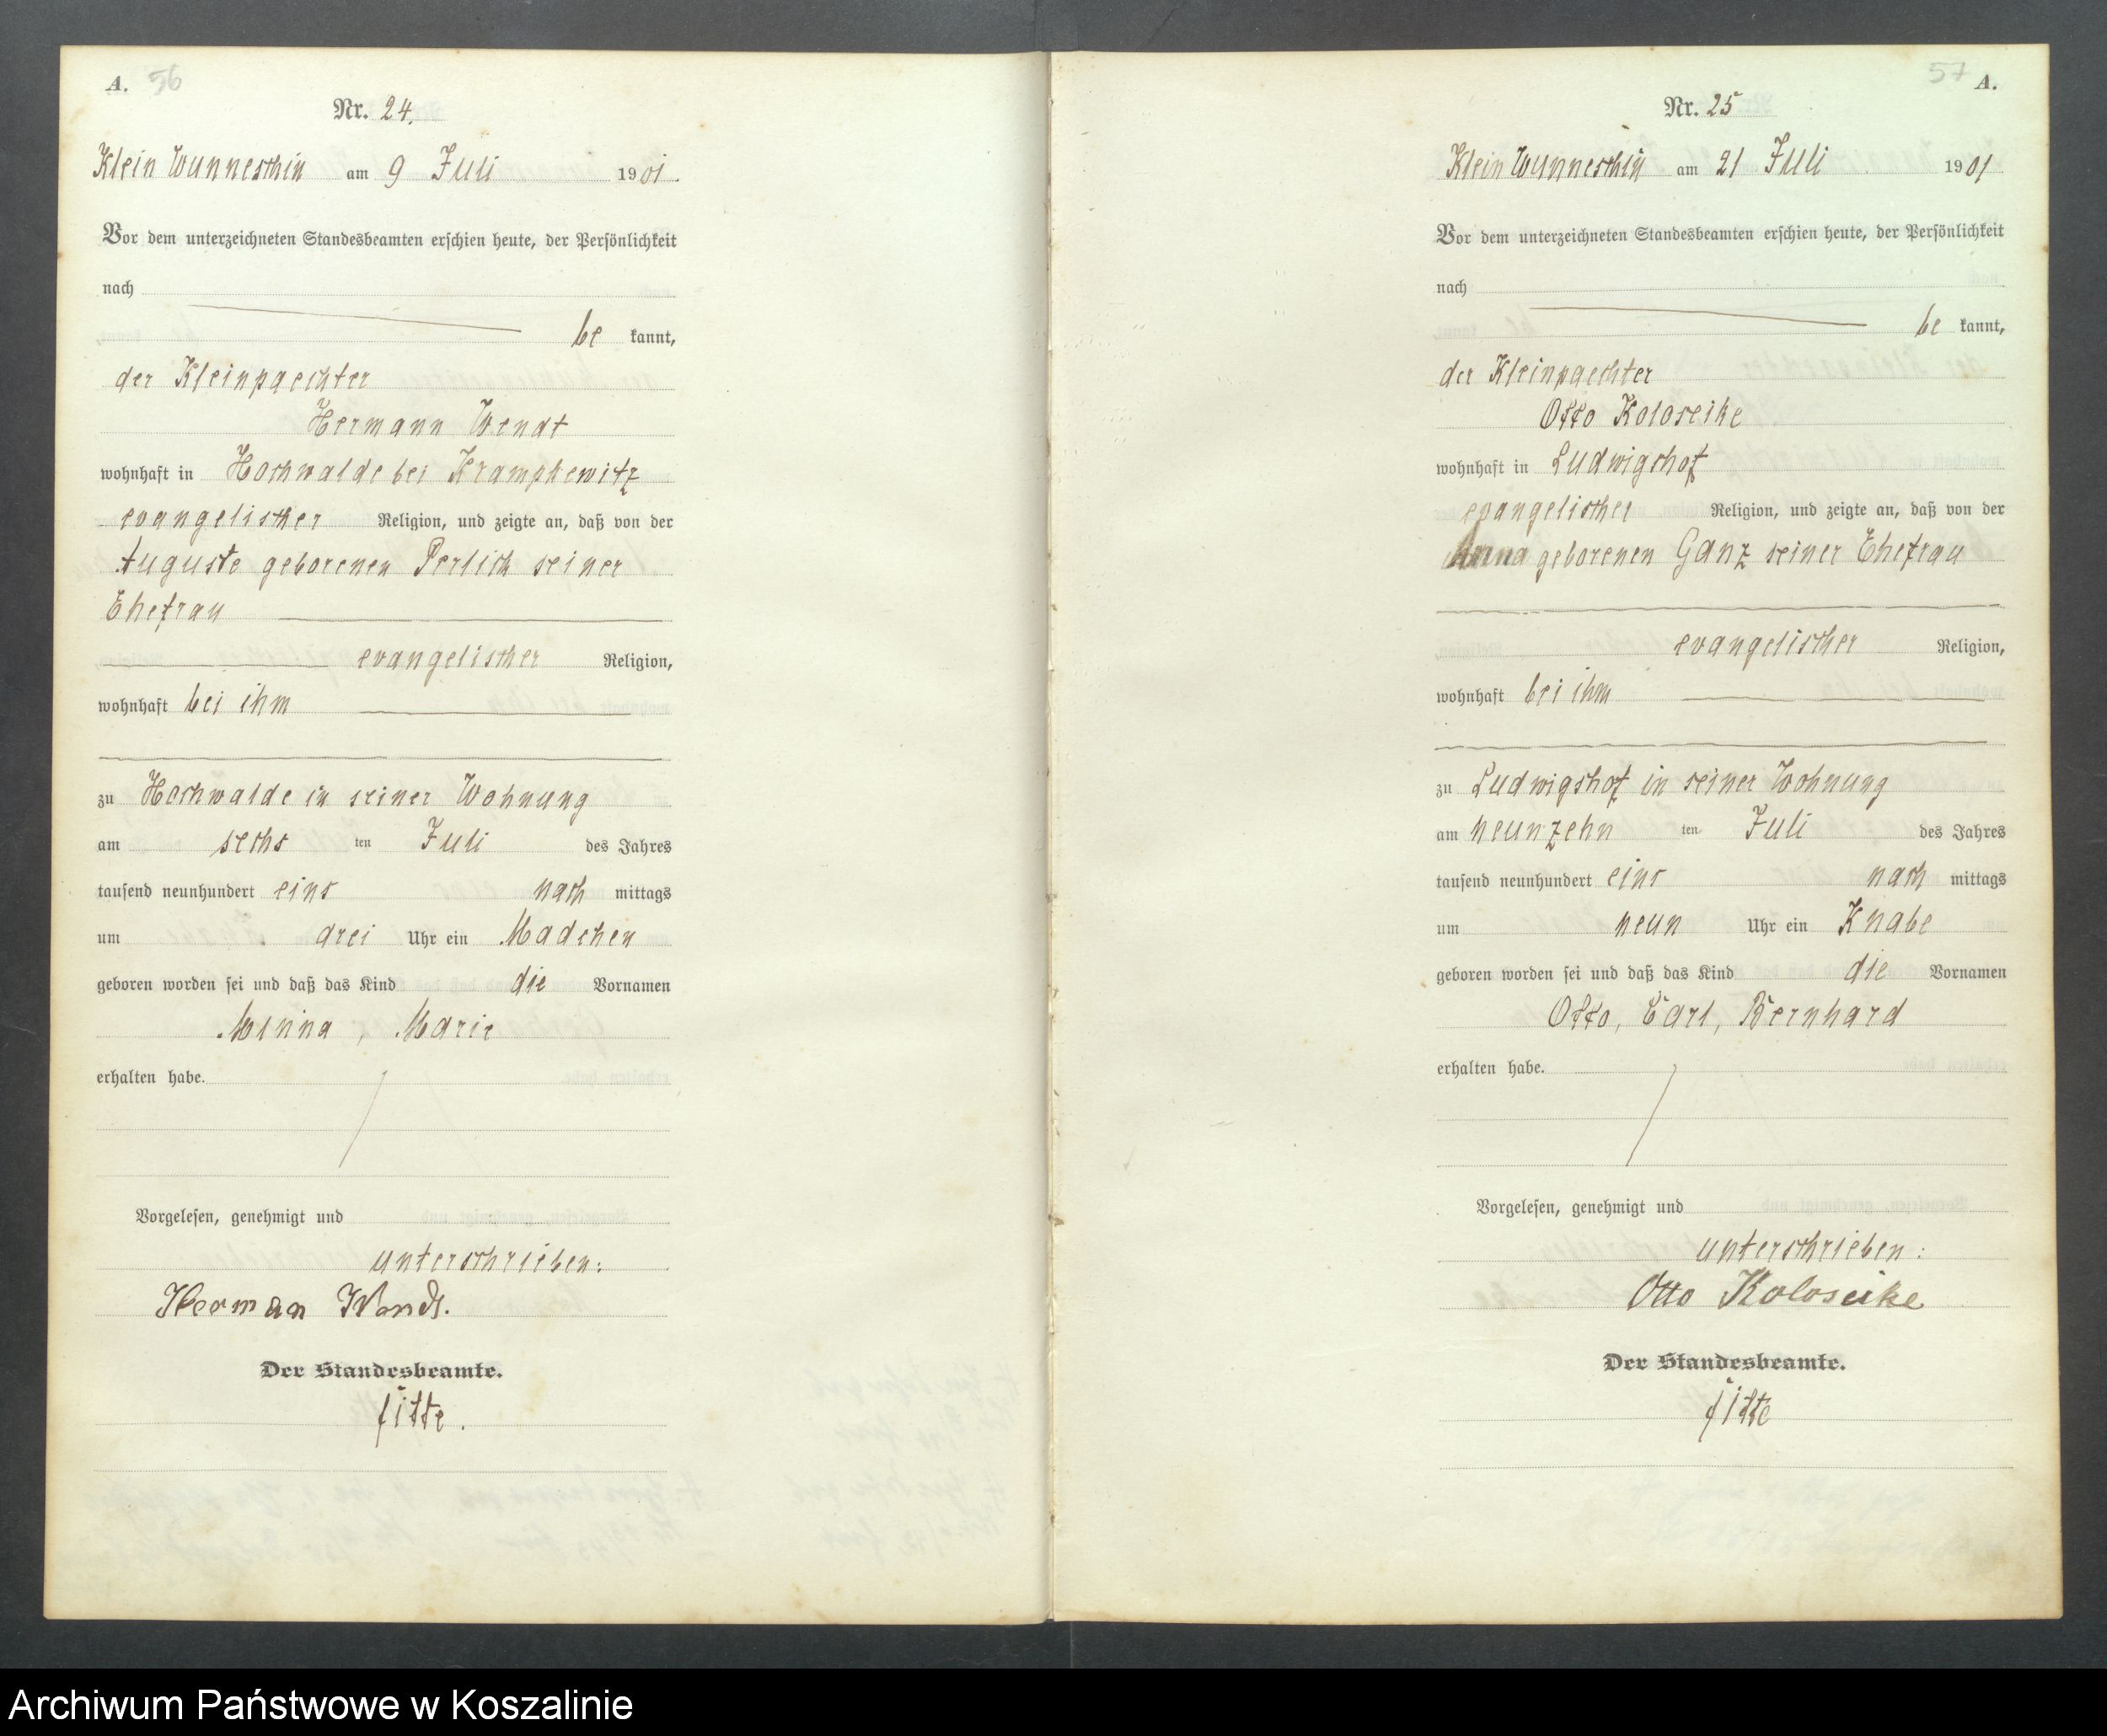 A. 56
Nr. 24.
Klein Wunneschin am 9 Juli 1901.
Vor dem unterzeichneten Standesbeamten erschien heute, der Persönlichkeit
nach
be kannt,
der Kleinpaechter
Hermann Wendt
wohnhaft in Hochwalde bei Krampkewitz
evangelischer Religion, und zeigte an, daß von der
Auguste geborenen Perlick seiner
Ehefrau
evangelischer Religion,
wohnhaft bei ihm
zu Hochwalde in seiner Wohnung
am sechs ten Juli des Jahres
tausend neunhundert eins nach mittags
um drei Uhr ein Madchen
geboren worden sei und daß das Kind die Vornamen
Minna, Marie
erhalten habe.
Vorgelesen, genehmigt und
unterschrieben:
Herman Wendt.
Der Standesbeamte.
fitte.
57 A.
Nr. 25
Klein Wunneschin am 21 Juli 1901
Vor dem unterzeichneten Standesbeamten erschien heute, der Persönlichkeit
nach
be kannt,
der Kleinpaechter
Otto Koloseike
wohnhaft in Ludwigshof
evangelischer Religion, und zeigte an, daß von der
Anna geborenen Ganz seiner Ehefrau
evangelischer Religion,
wohnhaft bei ihm
zu Ludwigshof in seiner Wohnung
am neunzehn ten Juli des Jahres
tausend neunhundert eins nach mittags
um neun Uhr ein Knabe
geboren worden sei und daß das Kind die Vornamen
Otto, Carl, Bernhard
erhalten habe.
Vorgelesen, genehmigt und
unterschrieben:
Otto Koloseike
Der Standesbeamte.
fitte
Archiwum Państwowe w Koszalinie